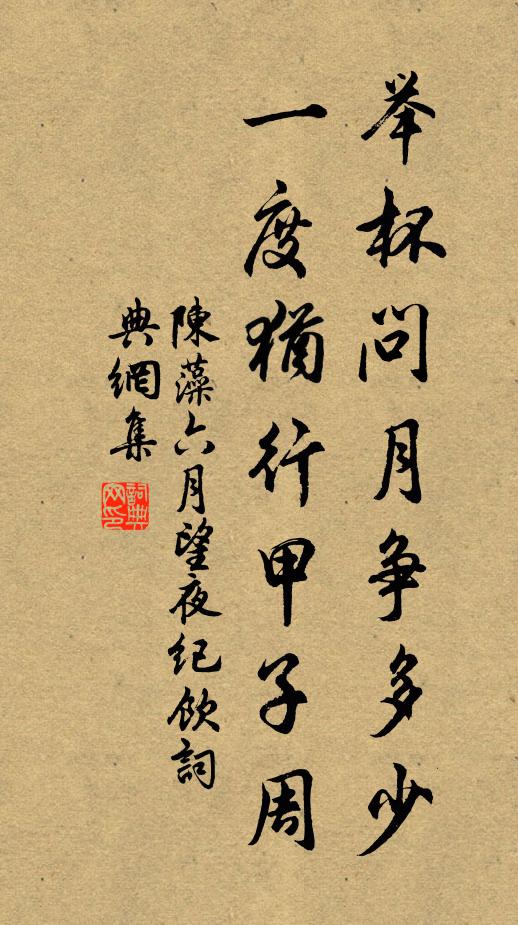 举杯问月争多少
一度猶行甲子周
陳藻六月望夜纪飲詞
典網集
詞典
网印